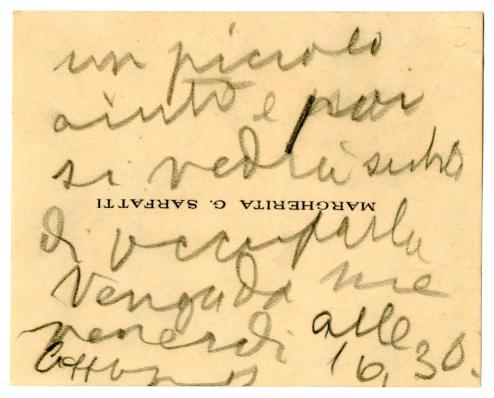 un piccolo
aiuto e poi
si vedrà subito
MARGHERITA G. SARFATTI
di occuparla
Venga da me
venerdi alle
16,30.